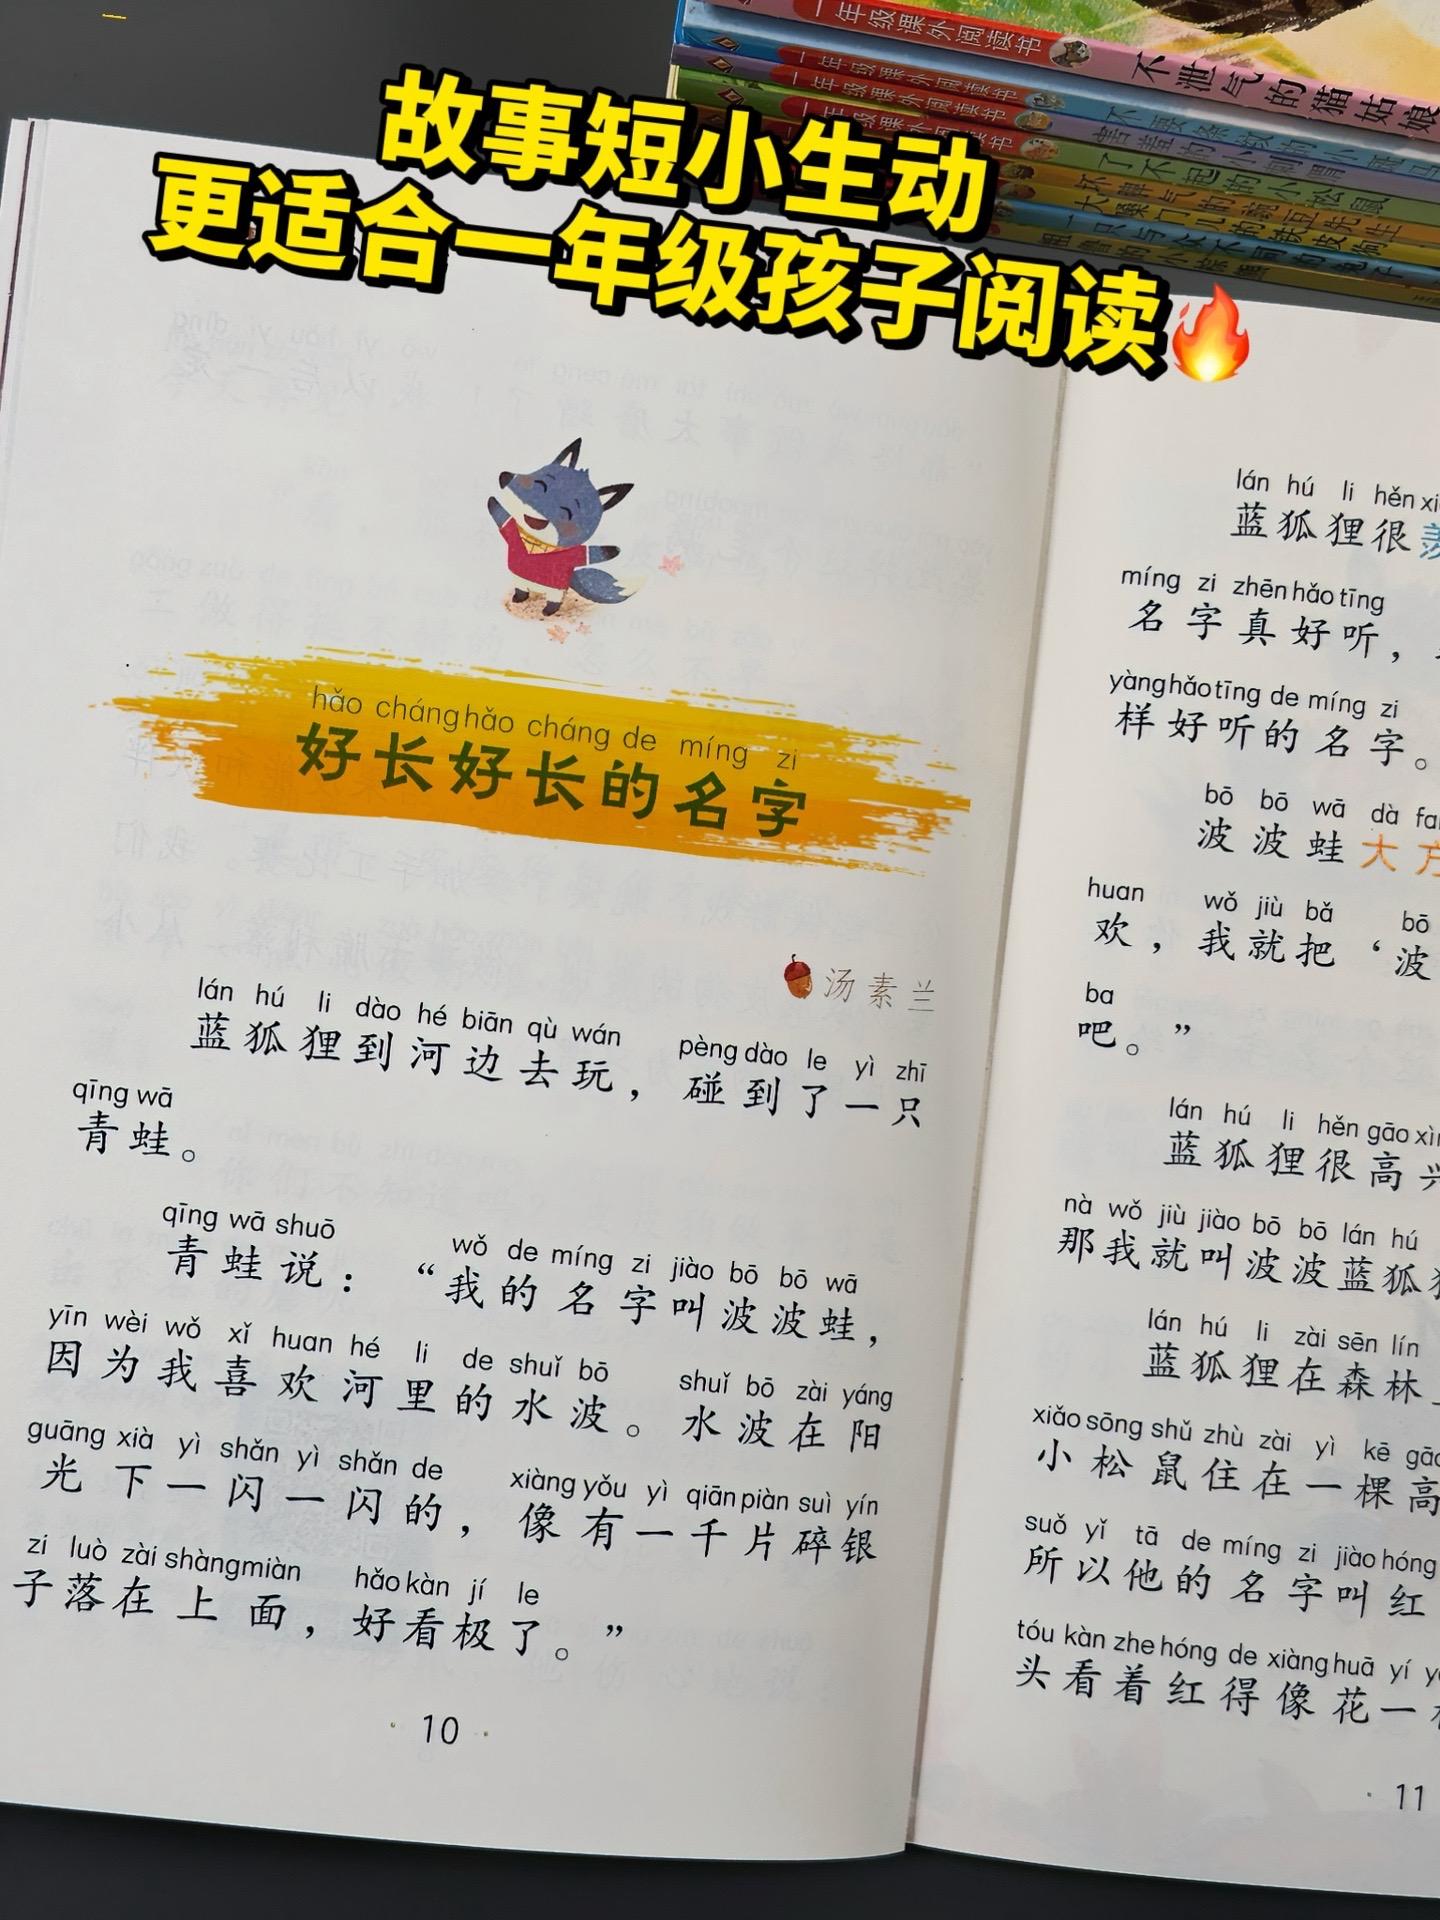 故事短小生动
更适合一年级孩子阅读
一年级课外阅读书
不泄气的猫姑娘
一年级课外阅读书
一年级课外阅读书
了不起的小松鼠
hǎo cháng hǎo cháng de míng zi
好长好长的名字
汤素兰
lán hú li dào hé biān qù wán pèng dào le yì zhī
蓝狐狸到河边去玩，碰到了一只
qīng wā
青蛙。
qīng wā shuō wǒ de míng zi jiào bō bō wā
青蛙说：“我的名字叫波波蛙，
yīn wèi wǒ xǐ huan hé li de shuǐ bō shuǐ bō zài yáng
因为我喜欢河里的水波。水波在阳
guāng xià yì shǎn yì shǎn de xiàng yǒu yì qiān piàn suì yín
光下一闪一闪的，像有一千片碎银
zi luò zài shàng miàn hǎo kàn jí le
子落在上面，好看极了。”
10
lán hú li hěn
蓝狐狸很
míng zi zhēn hǎo tīng
名字真好听，
yàng hǎo tīng de míng zi
样好听的名字。
bō bō wā dà
波波蛙大方
huan wǒ jiù bǎ bō
欢，我就把‘波
ba
吧。”
lán hú li hěn gāo
蓝狐狸很高兴
nà wǒ jiù jiào bō bō lán hú
那我就叫波波蓝狐
lán hú li zài sēn lín
蓝狐狸在森林
xiǎo sōng shǔ zhù zài yì kē
小松鼠住在一棵高
suǒ yǐ tā de míng zi jiào hóng
所以他的名字叫红
tóu kàn zhe hóng de xiàng huā yí
头看着红得像花一
11